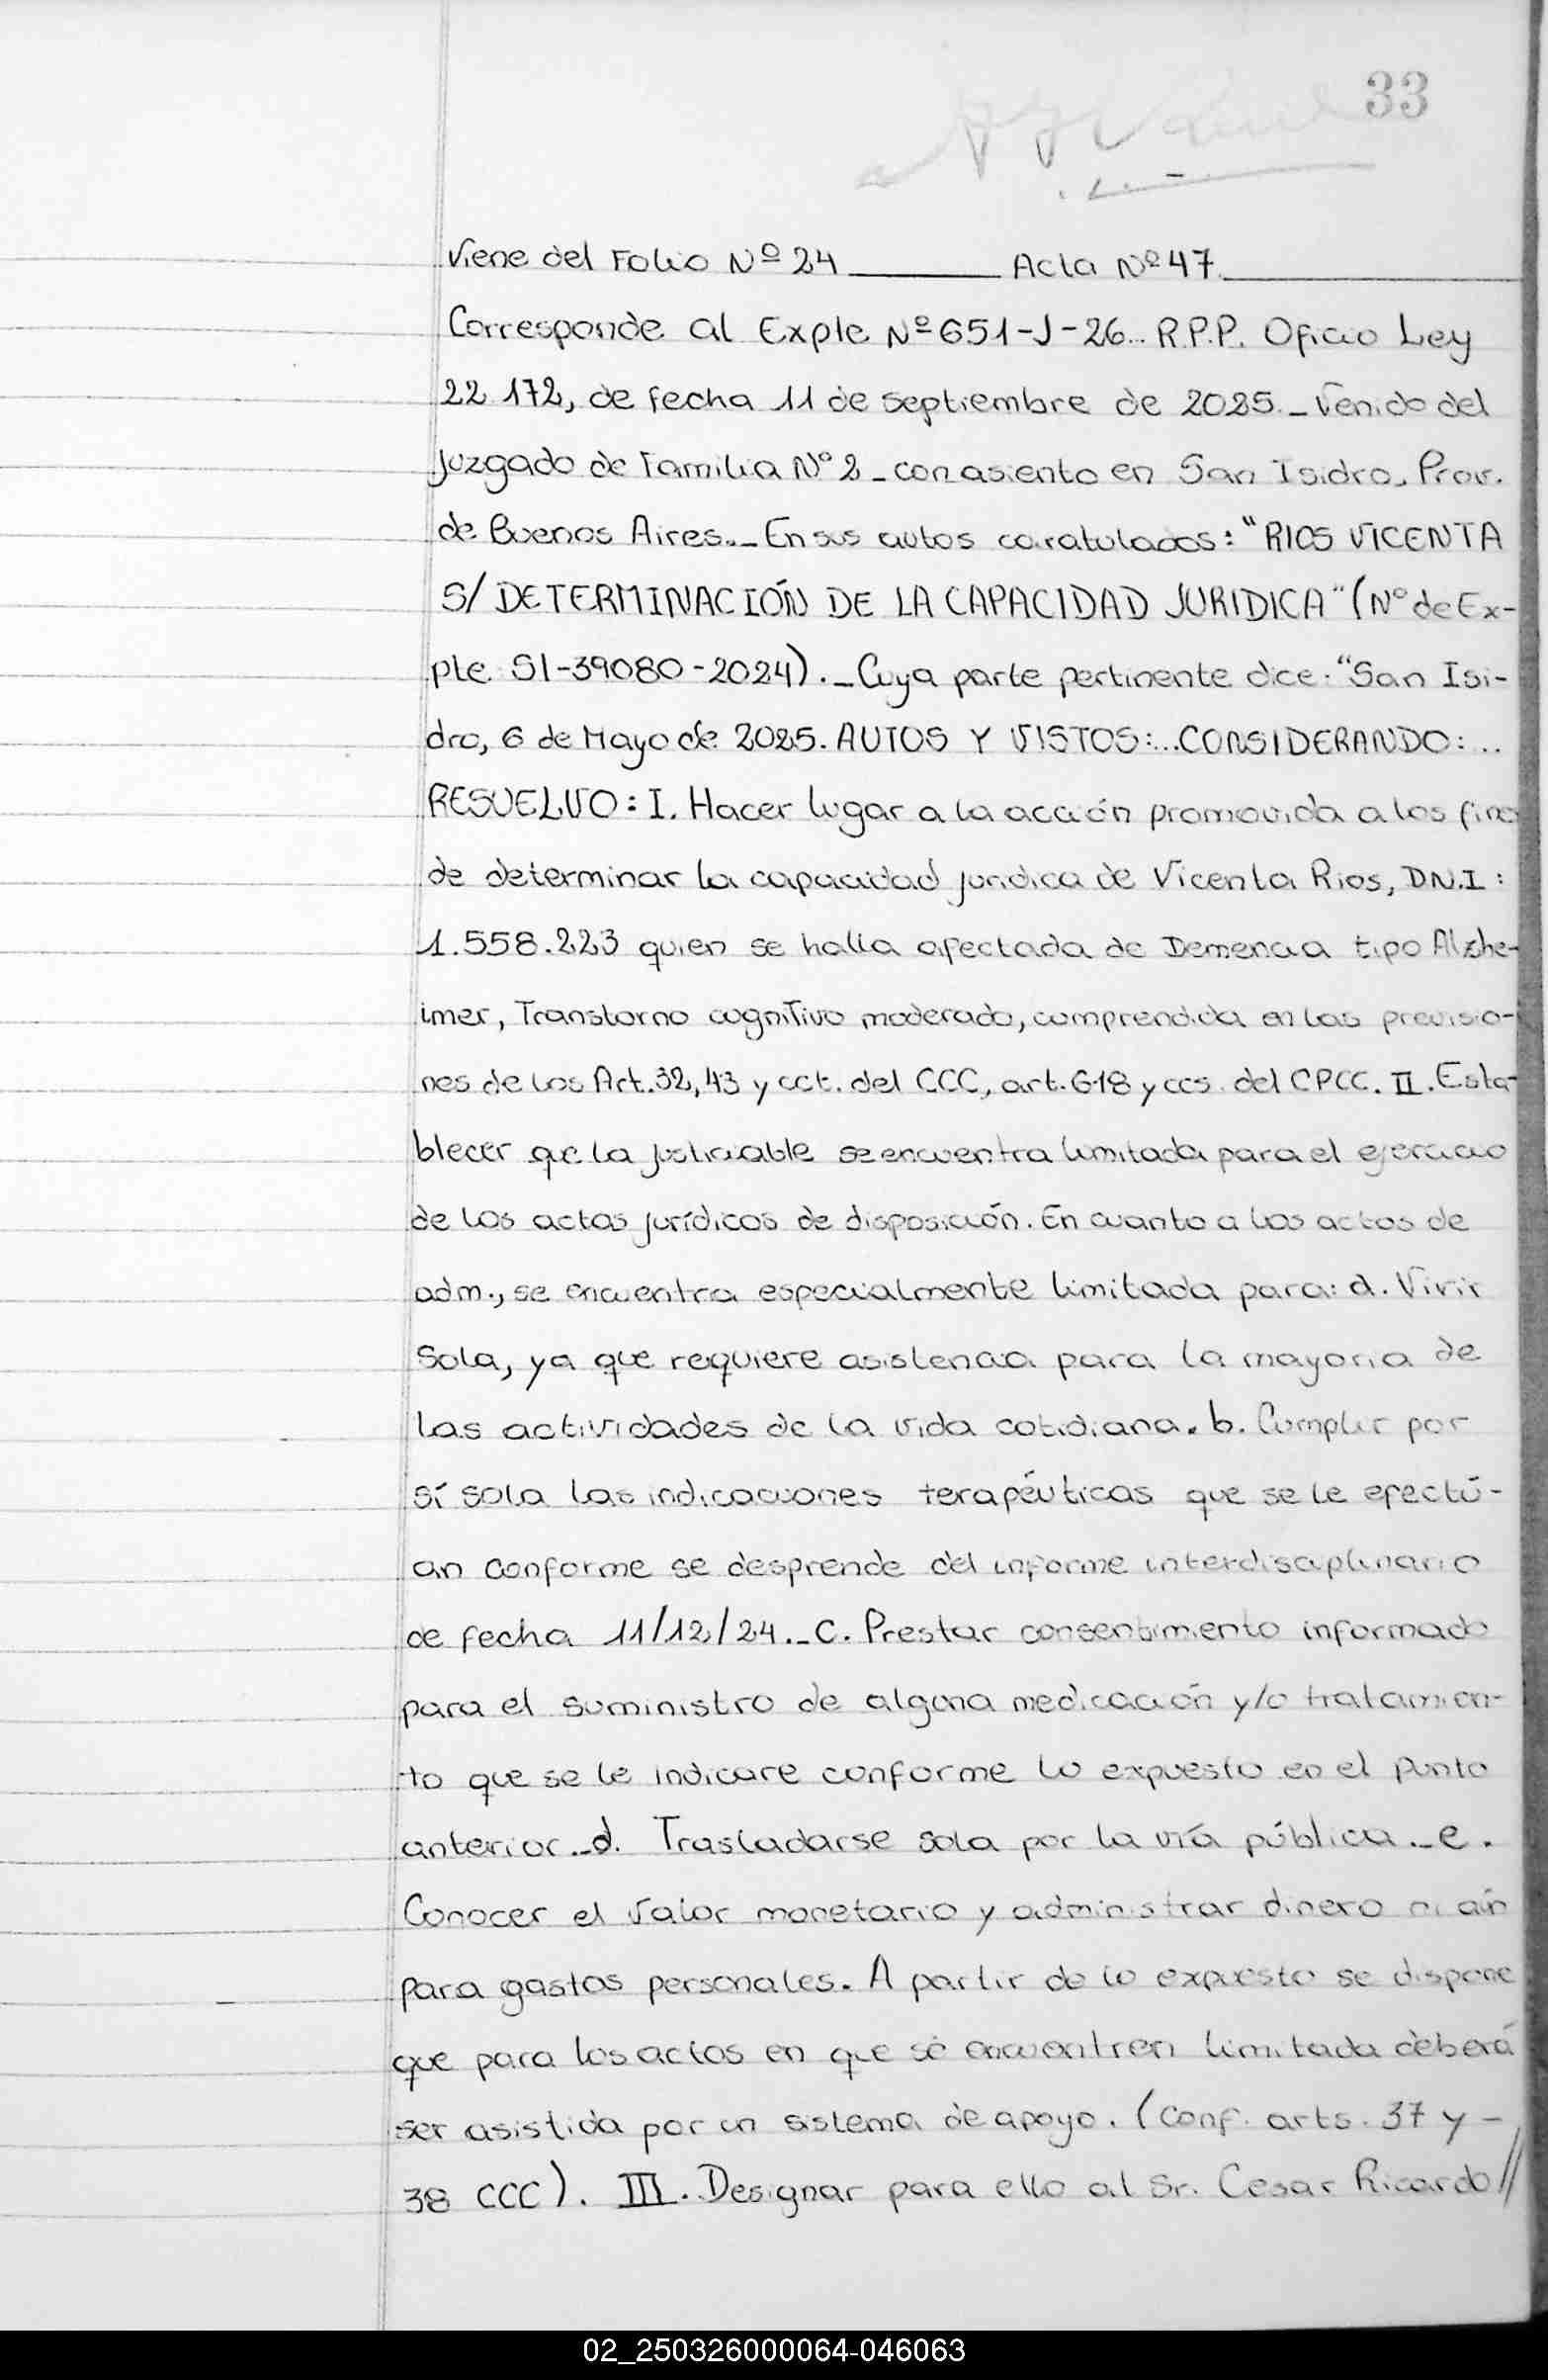 33
Viene del Folio Nº 24 ______ Acta Nº 47.______
Corresponde al Expte Nº 651-J-26.. R.P.P. Oficio Ley
22.172, de fecha 11 de septiembre de 2025._ Venido del
Juzgado de Familia Nº 2 - con asiento en San Isidro, Prov.
de Buenos Aires._ En sus autos caratulados: "RIOS VICENTA
S/ DETERMINACIÓN DE LA CAPACIDAD JURIDICA" (Nº de Ex-
pte SI-39080-2024)._ Cuya parte pertinente dice: "San Isi-
dro, 6 de Mayo de 2025. AUTOS Y VISTOS:...CONSIDERANDO:...
RESUELVO: I. Hacer lugar a la acción promovida a los fines
de determinar la capacidad juridica de Vicenta Rios, D.N.I:
1.558.223 quien se halla afectada de Demencia tipo Alzhe-
imer, Transtorno cognitivo moderado, comprendida en las previsio-
nes de los Art. 32, 43 y cct. del CCC, art. 618 y ccs. del CPCC. II. Esta-
blecer que la justiciable se encuentra limitada para el ejercicio
de los actos jurídicos de disposición. En cuanto a los actos de
adm., se encuentra especialmente limitada para: a. Vivir
Sola, ya que requiere asistencia para la mayoria de
las actividades de la vida cotidiana. b. Cumplir por
sí sola las indicaciones terapéuticas que se le efectú-
an conforme se desprende del informe interdisciplinario
de fecha 11/12/24._ c. Prestar consentimiento informado
para el suministro de alguna medicación y/o tratamien-
to que se le indicare conforme lo expuesto en el punto
anterior._ d. Trasladarse sola por la vía pública._ e.
Conocer el valor monetario y administrar dinero ni aún
para gastos personales. A partir de lo expuesto se dispone
que para los actos en que se encuentren limitada deberá
ser asistida por un sistema de apoyo. (Conf. arts. 37 y -
38 CCC). III. Designar para ello al Sr. Cesar Ricardo//
02_250326000064-046063